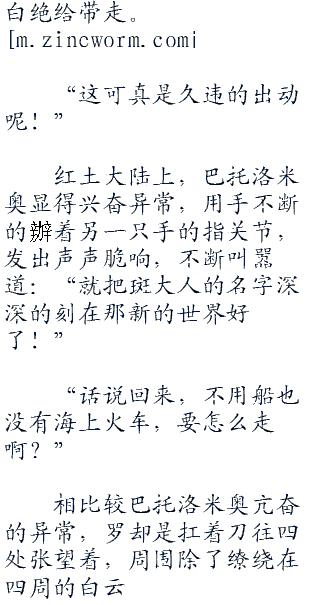 白绝给带走。
[m.zincworm.com|
“这可真是久违的出动
呢！”
红土大陆上，巴托洛米
奥显得兴奋异常，用手不断
的辦着另一只手的指关节，
发出声声脆响，不断叫嚣
道：“就把斑大人的名字深
深的刻在那新的世界好
了！”
“话说回来，不用船也
没有海上火车，要怎么走
啊？”
相比较巴托洛米奥亢奋
的异常，罗却是扛着刀往四
处张望着，周围除了缭绕在
四周的白云